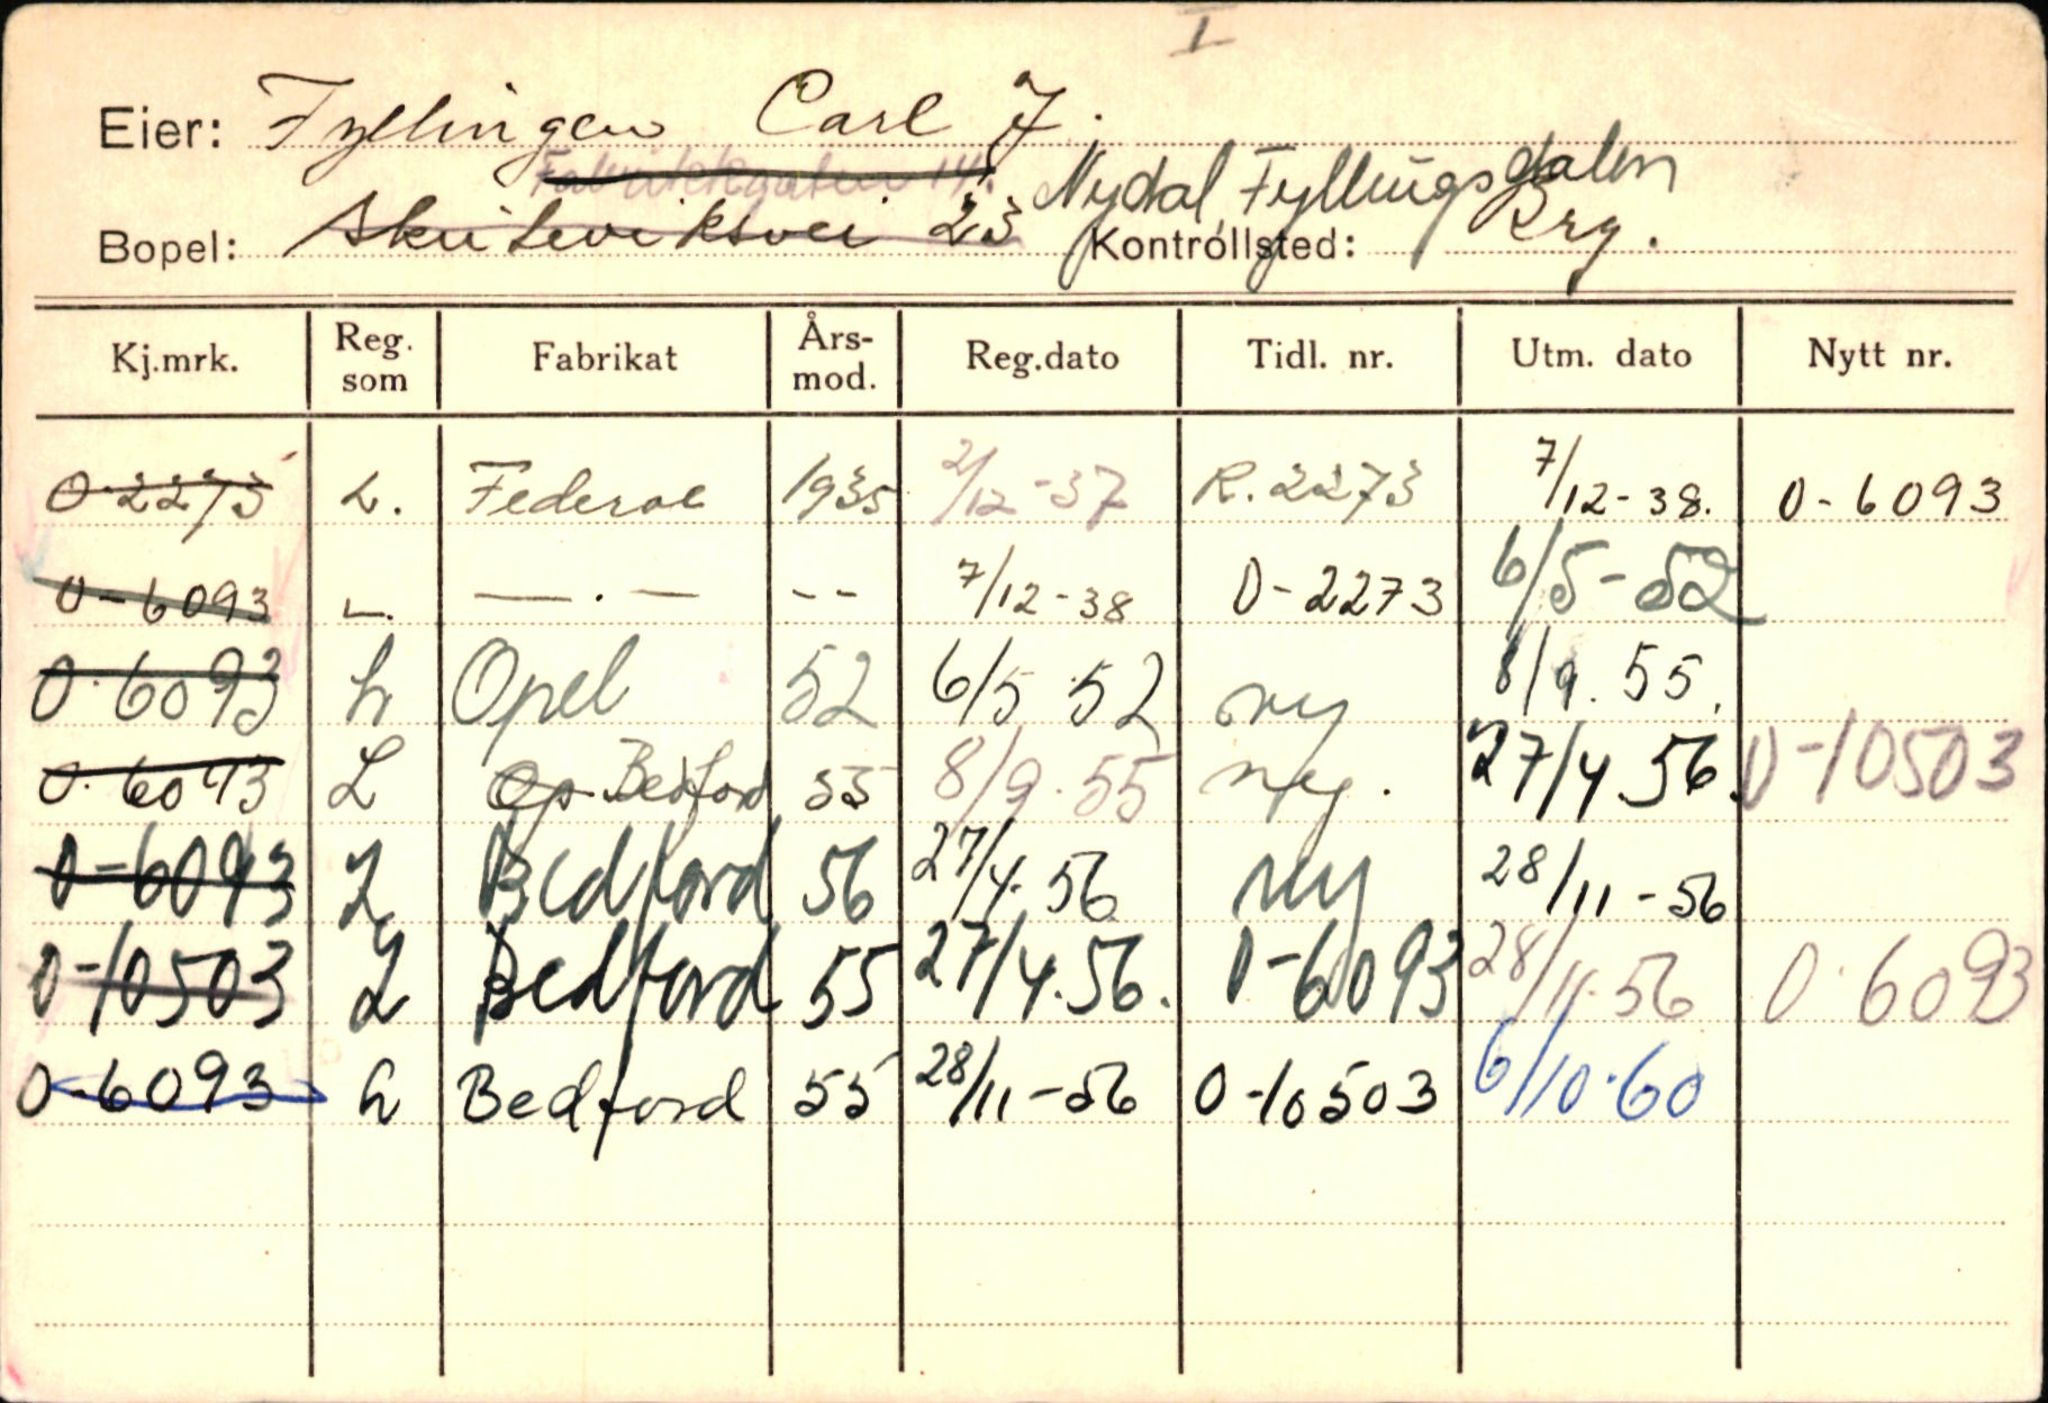 I
Eier: Fyllingen Carl J.
Fabrikkgaten 14.
Nydal, Fyllingsdalen
Bopel: Skuteviksvei 23 Kontrollsted: Brg.
Kj.mrk. Reg. som Fabrikat Års-mod. Reg.dato Tidl. nr. Utm. dato Nytt nr.
O-2273 L. Federal 1935 2/12-37 R.2273 7/12-38. O-6093
O-6093 L. —.— -- 7/12-38 O-2273 6/5-52
O-6093 L Opel 52 6/5 52 ny 8/9.55.
O-6093 L Op. Bedford 55 8/9.55 ny. 27/4 56. O-10503
O-6093 L Bedford 56 27/4.56 ny 28/11-56
O-10503 L Bedford 55 27/4.56. O-6093 28/11.56 O.6093
O-6093 L Bedford 55 28/11-56 O-10503 6/10.60